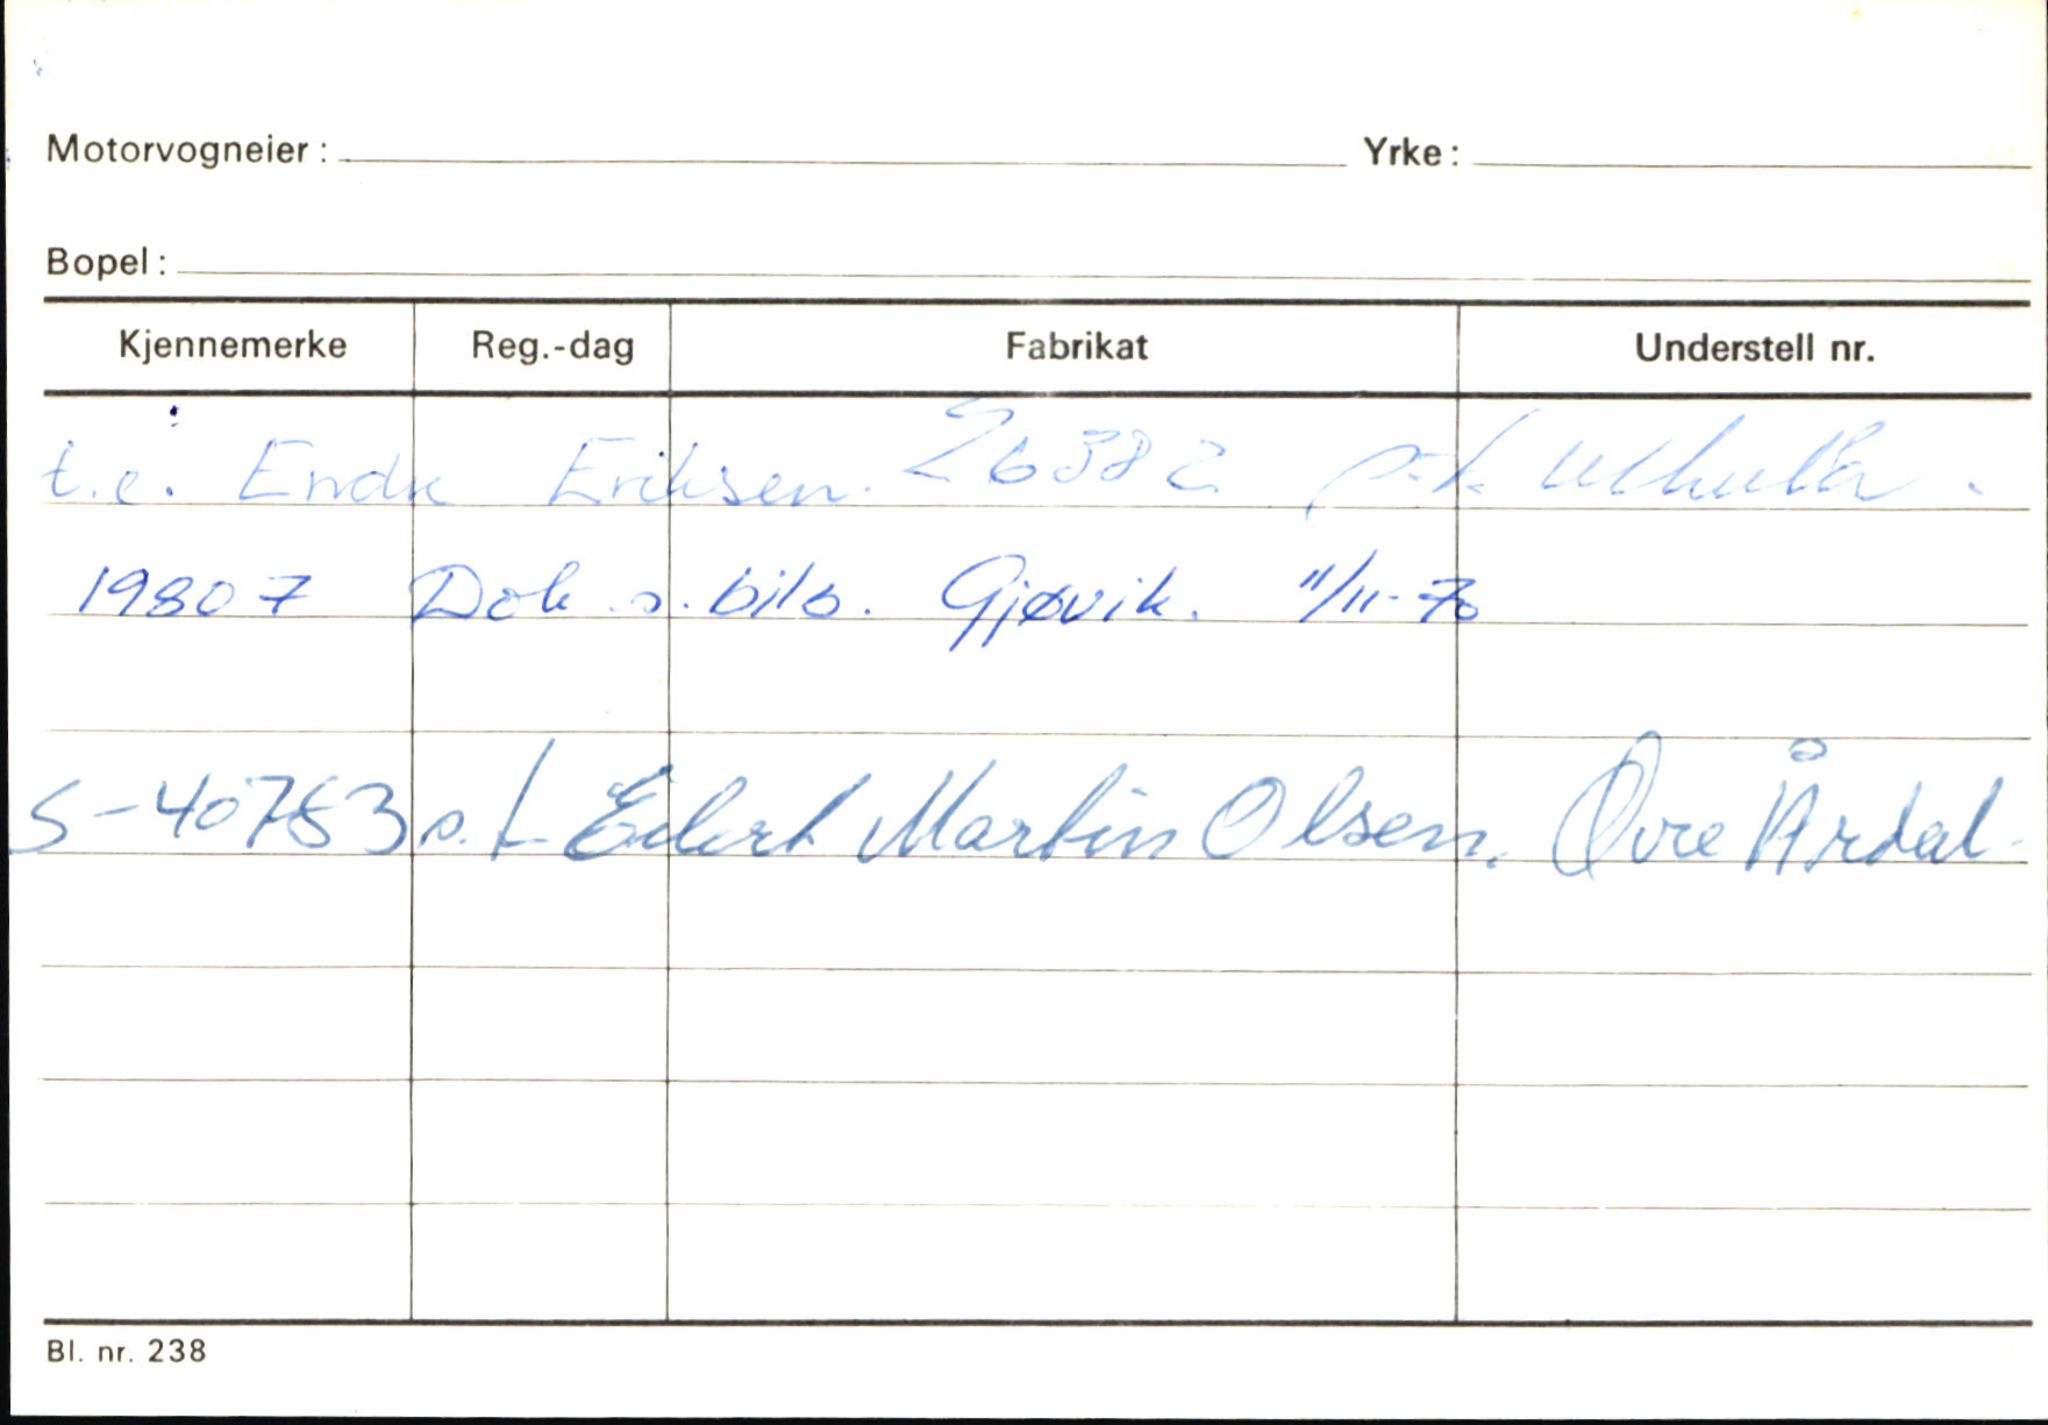 Motorvogneier: Yrke:
Bopel:
Kjennemerke Reg.-dag Fabrikat Understell nr.
t.e. Endre Eriksen. 26382 s.t.
19807 Dok s. bils. Gjøvik. 11/11-70
S-40753 s.t. Eilert Martin Olsen. Øvre Årdal.
Bl. nr. 238